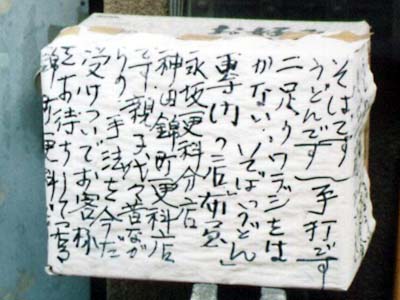 そばです
うどんです 手打です
二足のワラジをは
かない…そばうどん
専門の店「布屋」
永坂更科分店
神田錦町更科店
です 親子代々昔なが
らの手法を今だ
受けついでお客様
をお待ちして居
錦町更科